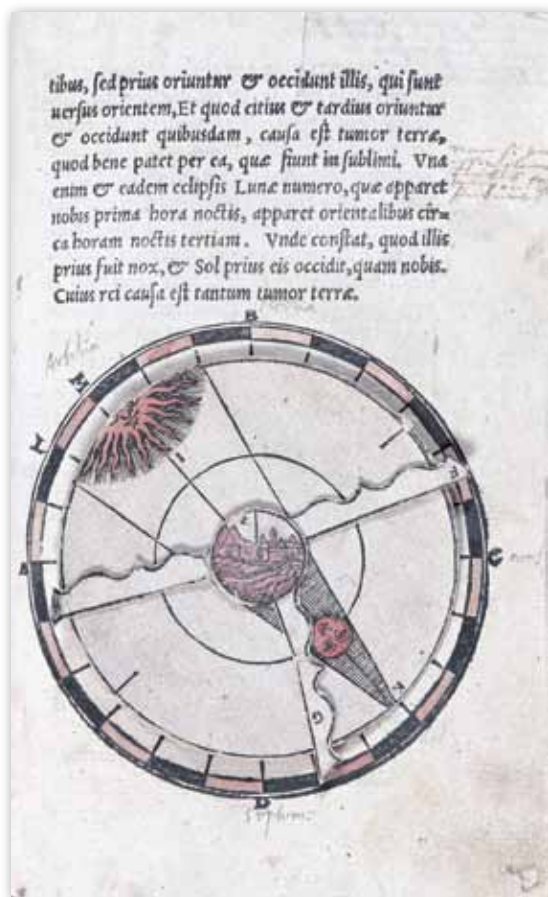 tibus, sed prius oriuntur & occidunt illis, qui sunt
uersus orientem, Et quod citius & tardius oriuntur
& occidunt quibusdam, causa est tumor terræ,
quod bene patet per ea, quæ fiunt in sublimi. Vna
enim & eadem eclipsis Lunæ numero, quæ apparet
nobis prima hora noctis, apparet orientalibus cir=
ca horam noctis tertiam. Vnde constat, quod illis
prius fuit nox, & Sol prius eis occidit, quam nobis.
Cuius rei causa est tantum tumor terræ.
B
M
L
E
C
K
G
D